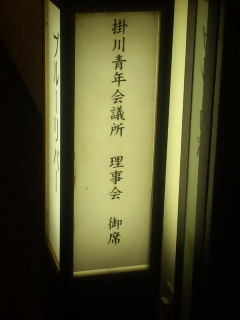 掛川青年会議所　理事会　御席
ブルーリバー